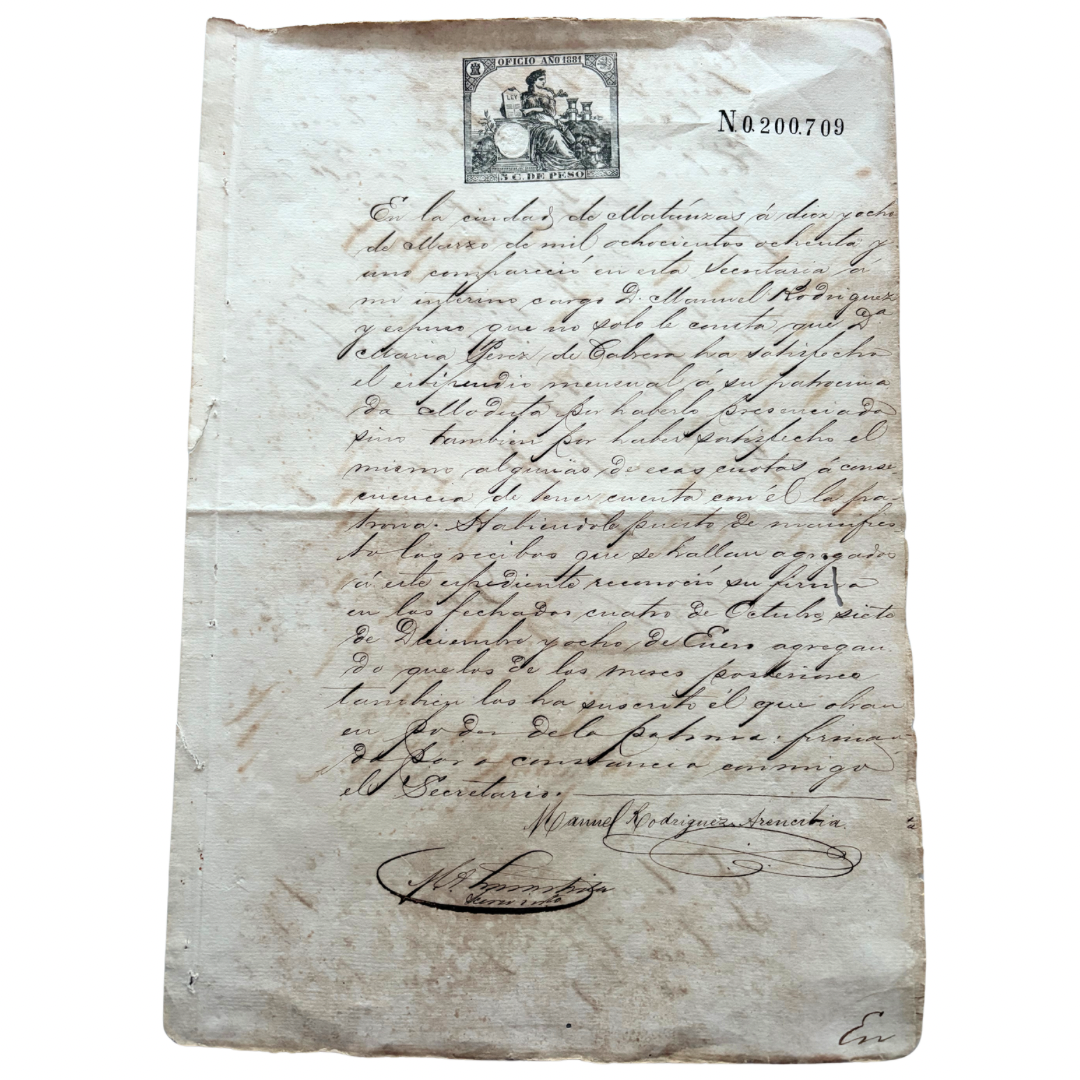 OFICIO AÑO 1881
LEY
5 C. DE PESO
N.0.200.709
En la ciudad de Matánzas á diez y ocho
de Marzo de mil ochocientos ochenta y
uno compareció en esta Secretaria á
mi interino cargo D. Manuel Rodriguez
y espuso que no solo le consta que Dª
Maria Perez de Cabrera ha satisfecho
el estipendio mensual á su patrocina
da Modesta por haberlo presenciado
sino tambien por haber satisfecho el
mismo algunas de esas cuotas á conse-
cuencia de tener cuenta con él la pa-
trona. Habiendole puesto de manifies
to los recibos que se hallan agregados
á este espediente reconoció su firma
en los fechados cuatro de Octubre, siete
de Diciembre y ocho de Enero agregan
do que los de los meses posteriores
tambien los ha suscrito él que obran
en poder de la patrona. firman-
do para constancia conmigo
el Secretario.
Manuel Rodriguez Arencibia
En